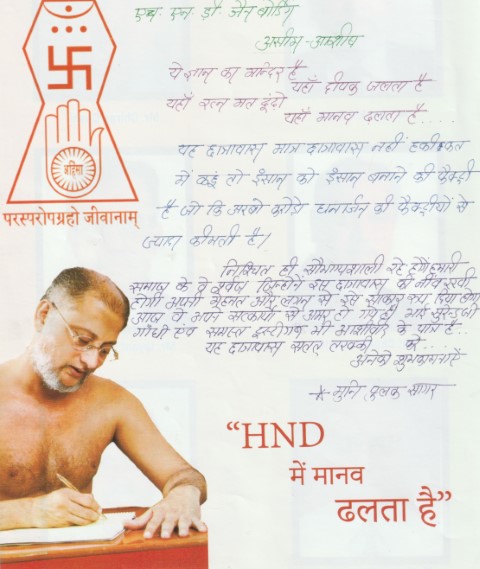 एच. एन. डी. जैन बोर्डिंग
असीम-आशीष
ये ज्ञान का मन्दिर है
यहाँ दीपक जलता है
यहाँ रत्न मत ढूंढो
यहाँ मानव ढलता है....
यह छात्रावास मात्र छात्रावास नहीं हकीकत
में कहूं तो इंसान को इंसान बनाने की फैक्ट्री
है जो कि अरबो करोडो धनार्जन की फैक्ट्रीयों से
ज्यादा कीमती है।
निश्चित ही सौभाग्यशाली रहे होंगे हमारी
समाज के वे पूर्वज जिन्होंने इस छात्रावास की नींव रखी
होगी अपनी मेहनत और लगन से इसे साकार रूप दिया होगा
आज वे अपने सत्कार्यो से अमर हो गए हैं भाई सुरेन्द्रजी
गाँधी एवं समस्त ट्रस्टीगण भी आशीर्वाद के पात्र हैं...
यह छात्रावास सतत् तरक्की करे....
अनेकों शुभकामनाएं
मुनि पुलक सागर
अहिंसा
परस्परोपग्रहो जीवानाम्
“HND
में मानव
ढलता है”